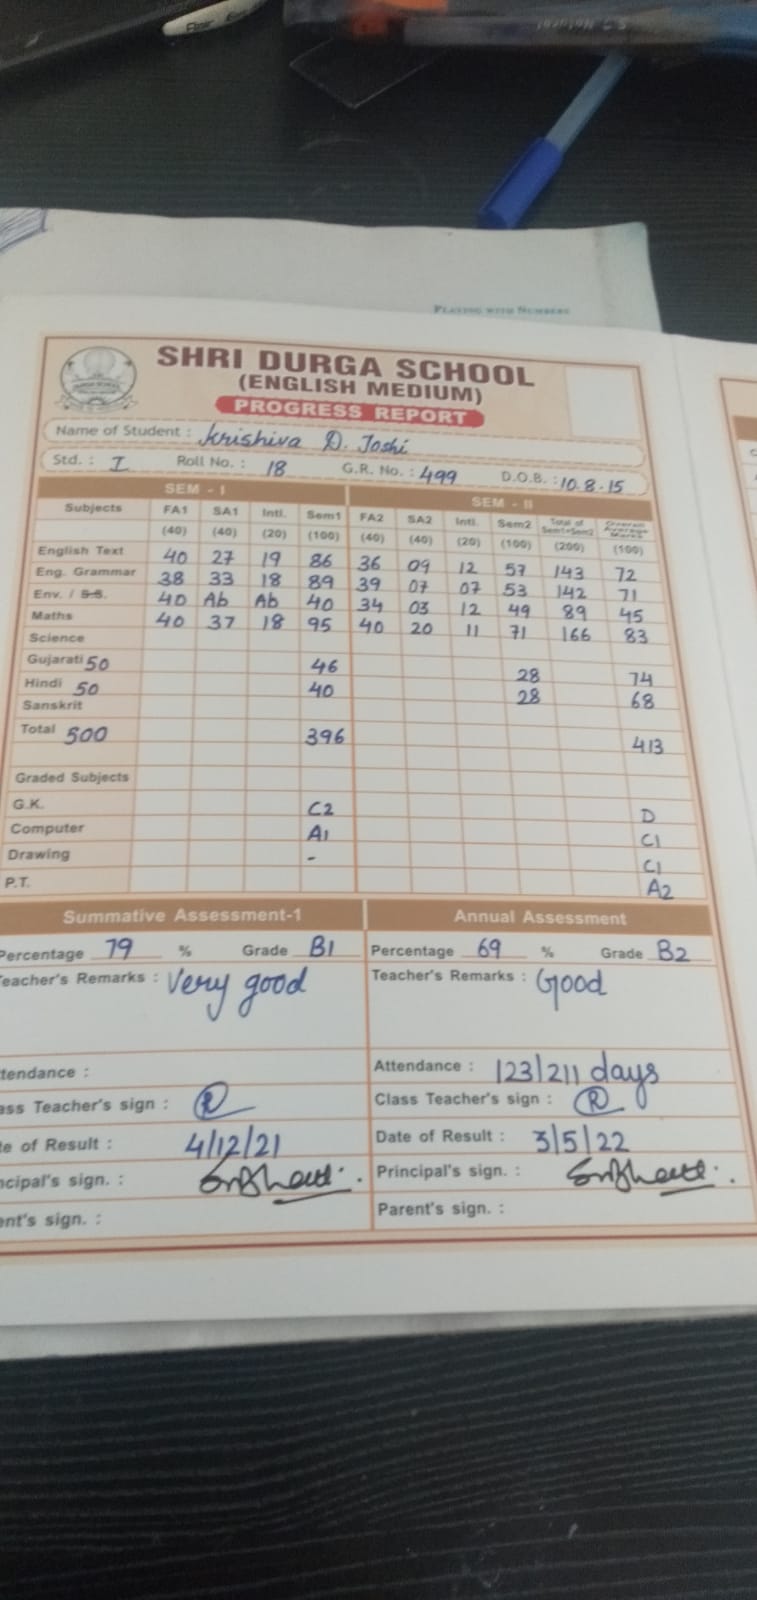 PLAYING WITH NUMBERS
SHRI DURGA SCHOOL
(ENGLISH MEDIUM)
PROGRESS REPORT
Name of Student : Krishiva D. Joshi
Std. : I Roll No. : 18 G.R. No. : 499 D.O.B. : 10.8.15
SEM - I SEM - II
Subjects FA1 SA1 Intl. Sem1 FA2 SA2 Intl. Sem2 Total of Sem1+Sem2 Overall Average Marks
(40) (40) (20) (100) (40) (40) (20) (100) (200) (100)
English Text 40 27 19 86 36 09 12 57 143 72
Eng. Grammar 38 33 18 89 39 07 07 53 142 71
Env. / S.S. 40 Ab Ab 40 34 03 12 49 89 45
Maths 40 37 18 95 40 20 11 71 166 83
Science
Gujarati 50 46 28 74
Hindi 50 40 28 68
Sanskrit
Total 500 396 413
Graded Subjects
G.K. C2 D
Computer A1 C1
Drawing - C1
P.T. A2
Summative Assessment-1 Annual Assessment
Percentage 79 % Grade B1 Percentage 69 % Grade B2
Teacher's Remarks : Very good Teacher's Remarks : Good
ttendance : Attendance : 123/211 days
ass Teacher's sign : R Class Teacher's sign : R
te of Result : 4/12/21 Date of Result : 3/5/22
ncipal's sign. : Principal's sign. :
ent's sign. : Parent's sign. :